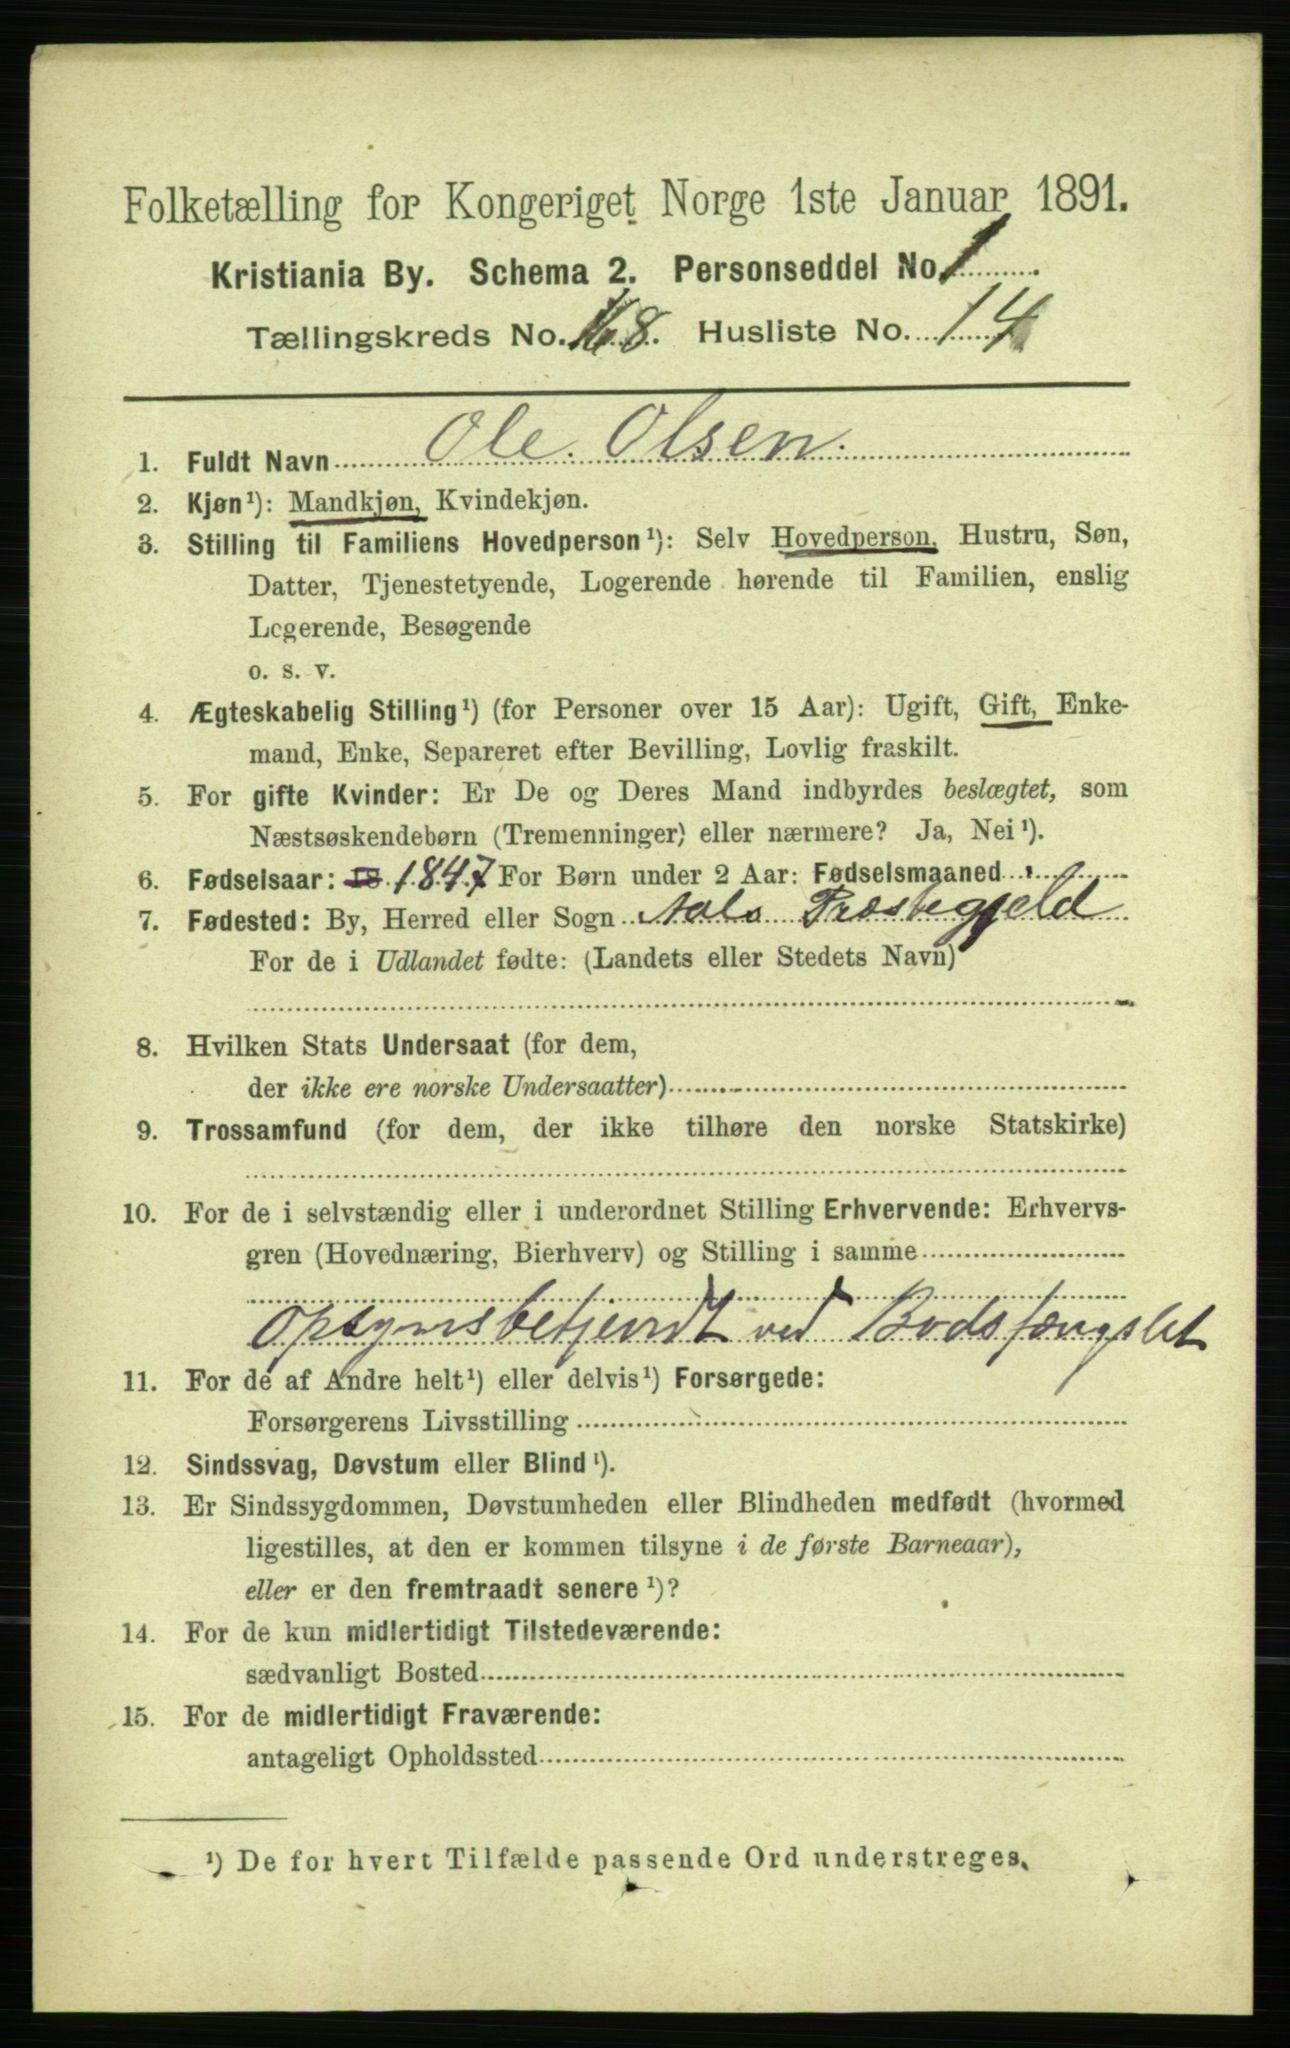 Folketælling for Kongeriget Norge 1ste Januar 1891.
Kristiania By. Schema 2. Personseddel No. 1
Tællingskreds No. 168. Husliste No. 14
1. Fuldt Navn Ole Olsen.
2. Kjøn¹): Mandkjøn, Kvindekjøn.
3. Stilling til Familiens Hovedperson¹): Selv Hovedperson, Hustru, Søn,
Datter, Tjenestetyende, Logerende hørende til Familien, enslig
Logerende, Besøgende
o. s. v.
4. Ægteskabelig Stilling¹) (for Personer over 15 Aar): Ugift, Gift, Enke-
mand, Enke, Separeret efter Bevilling, Lovlig fraskilt.
5. For gifte Kvinder: Er De og Deres Mand indbyrdes beslægtet, som
Næstsøskendebørn (Tremenninger) eller nærmere? Ja, Nei¹).
6. Fødselsaar: 18 1847 For Børn under 2 Aar: Fødselsmaaned
7. Fødested: By, Herred eller Sogn Aals Præstegjeld
For de i Udlandet fødte: (Landets eller Stedets Navn)
8. Hvilken Stats Undersaat (for dem,
der ikke ere norske Undersaatter)
9. Trossamfund (for dem, der ikke tilhøre den norske Statskirke)
10. For de i selvstændig eller i underordnet Stilling Erhvervende: Erhvervs-
gren (Hovednæring, Bierhverv) og Stilling i samme
Opsynsbetjendt ved Bodsfængslet
11. For de af Andre helt¹) eller delvis¹) Forsørgede:
Forsørgerens Livsstilling
12. Sindssvag, Døvstum eller Blind¹).
13. Er Sindssygdommen, Døvstumheden eller Blindheden medfødt (hvormed
ligestilles, at den er kommen tilsyne i de første Barneaar),
eller er den fremtraadt senere¹)?
14. For de kun midlertidigt Tilstedeværende:
sædvanligt Bosted
15. For de midlertidigt Fraværende:
antageligt Opholdssted
¹) De for hvert Tilfælde passende Ord understreges.